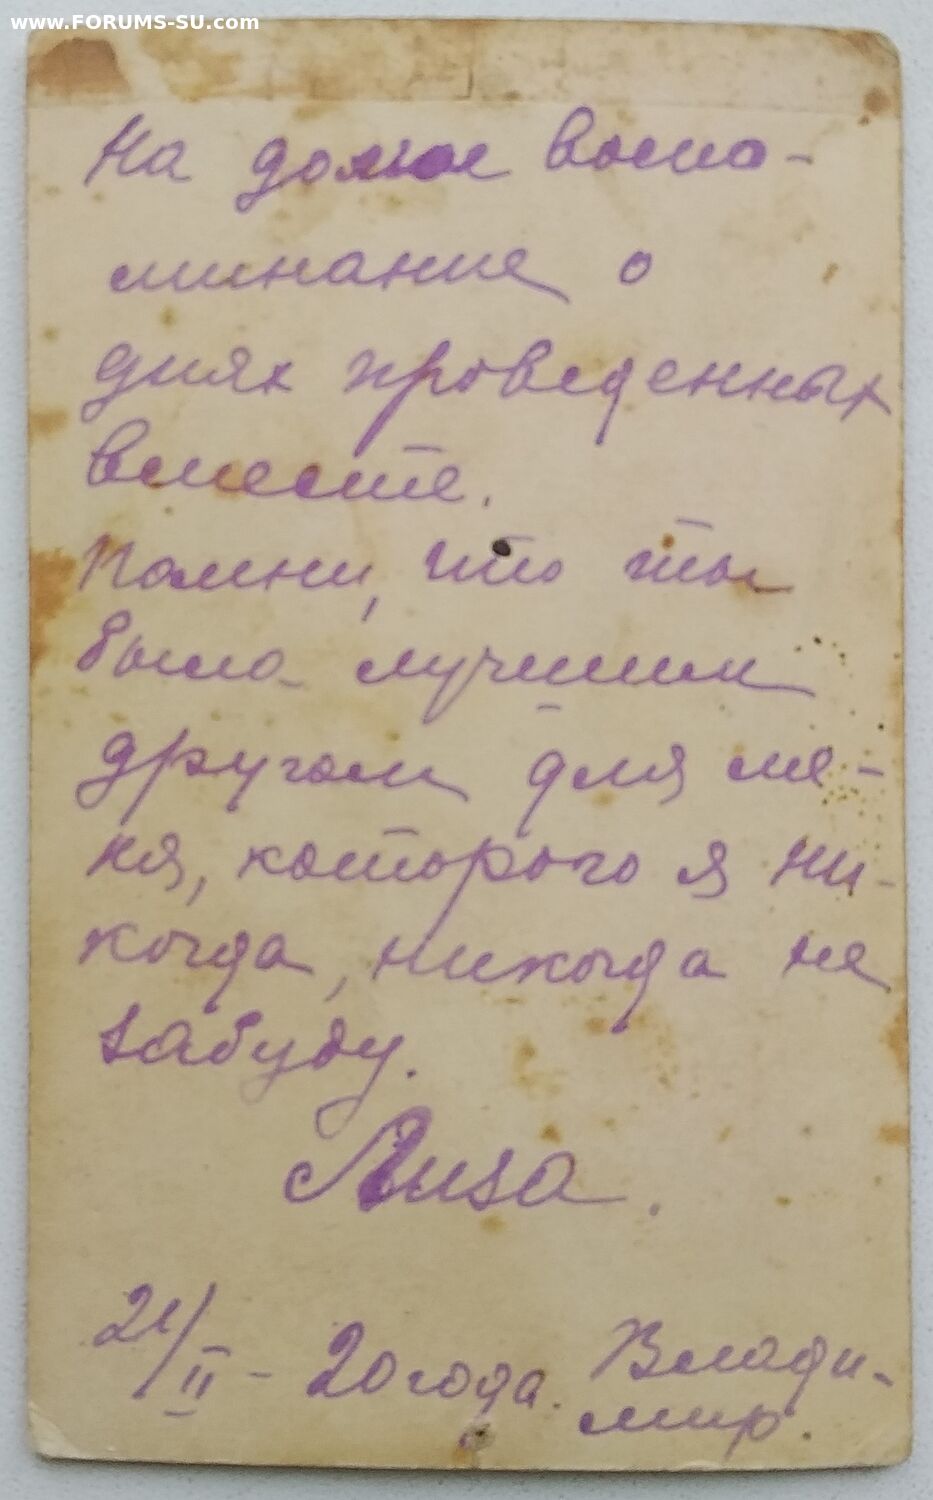 www.FORUMS-SU.com
На долгое воспо-
минание о
днях проведенных
вместе.
Помни, что ты
была лучшим
другом для ме-
ня, которого я ни-
когда, никогда не
забуду.
Лиза.
21/II - 20 года. Влади-
мир.